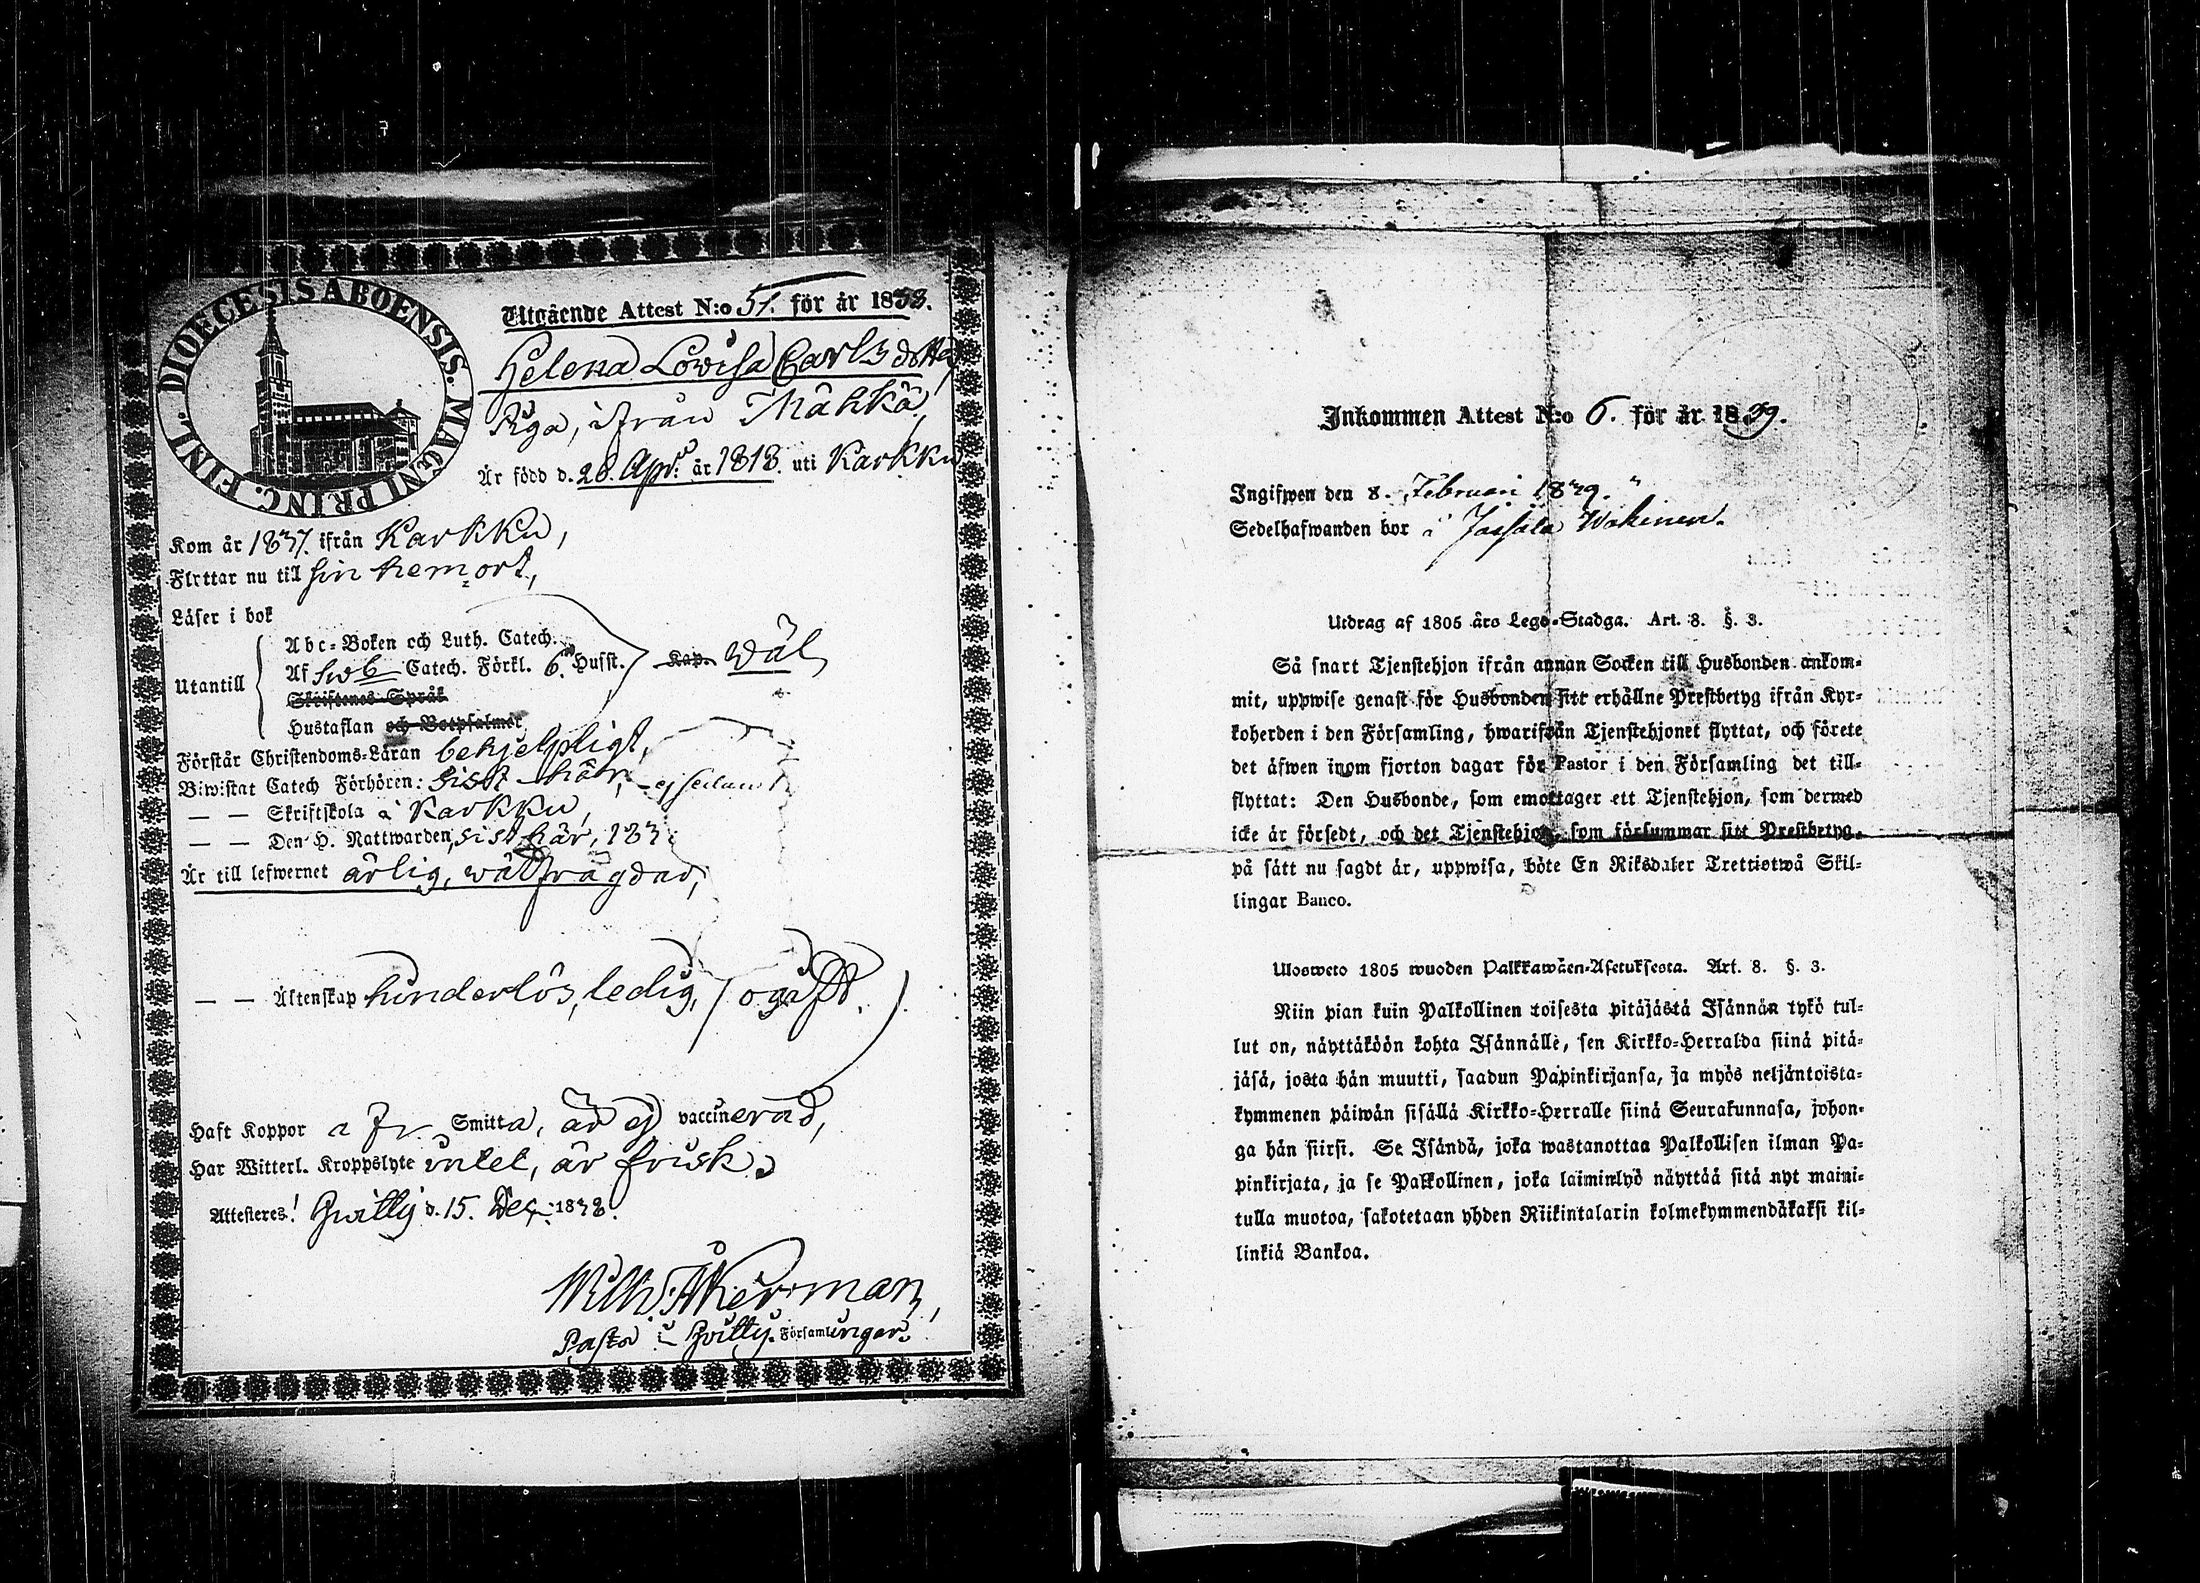 DIOECESIS ABOENSIS. MAGNI PRINC. FINL.
Utgående Attest N:o 51. för år 1838.
Helena Lowisa Carlsdotter,
Piga, ifrån Mähkä,
Är född d. 28. Apr. år 1818. uti Karkku
Kom år 1837. ifrån Karkku,
Flyttar nu till sin hemort,
Läser i bok
Utantill
Abc-Boken och Luth. Catech.
Af Catech. Förkl. 6. Husst. Kap. wäl,
Skriftenes Språk
Hustaflan och Botpsalmer
Förstår Christendoms-Läran behjelpligt,
Biwistat Catech Förhören: sist här,
— — Skriftskola i Karkku,
— — Den H. Nattwarden, sist här, 183
Är till lefwernet ärlig, wälfrägdad,
— — Äktenskap hinderlös, ledig, ogift.
Haft Koppor Smitta, är ej vaccinerad,
Har Witterl. Kroppslyte intet, är frisk.
Attesteres! d. 15. Dec. 1838.
Wilh. Åkerman,
Pastor i Församlingar.
Inkommen Attest N:o 6. för år 1839.
Ingifwen den 8. Februari 1839.
Sedelhafwanden bor i
Utdrag af 1805 års Lego-Stadga. Art. 8. §. 3.
Så snart Tjenstehjon ifrån annan Socken till Husbonden ankom-
mit, uppwise genast för Husbonden sitt erhållne Prestbetyg ifrån Kyr-
koherden i den Församling, hwarifrån Tjenstehjonet flyttat, och förete
det äfwen inom fjorton dagar för Pastor i den Församling det till-
flyttat: Den Husbonde, som emottager ett Tjenstehjon, som dermed
icke är försedt, och det Tjenstehjon, som försummar sitt Prestbetyg,
på sätt nu sagdt är, uppwisa, böte En Riksdaler Trettiotwå Skil-
lingar Banco.
Ulosweto 1805 wuoden Palkkawäen-Asetuksesta. Art. 8. §. 3.
Niin pian kuin Palkollinen toisesta pitäjästä Isännän tykö tul-
lut on, näyttäköön kohta Isännälle, sen Kirkko-Herralda siinä pitä-
jäsä, josta hän muutti, saadun Papinkirjansa, ja myös neljäntoista-
kymmenen päiwän sisällä Kirkko-Herralle siinä Seurakunnasa, johon-
ga hän siirsi. Se Isändä, joka wastanottaa Palkollisen ilman Pa-
pinkirjata, ja se Palkollinen, joka laiminlyö näyttää sitä nyt maini-
tulla muotoa, sakotetaan yhden Riikintalarin kolmekymmendäkaksi kil-
linkiä Bankoa.